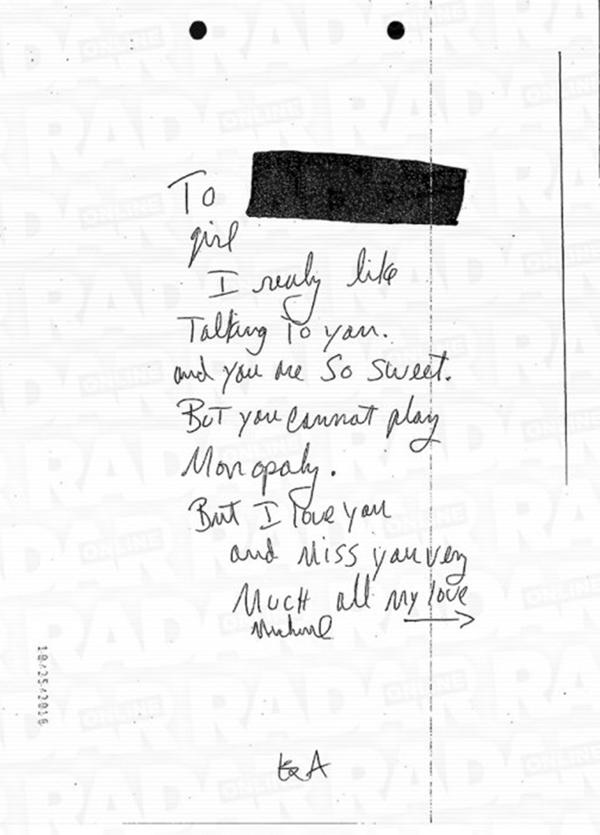 To
girl
I realy like
Talking To you.
and you are So Sweet.
BuT you Cannot play
Monopaly.
But I love you
and Miss you very
Much all my love
Michael
10/25/2016